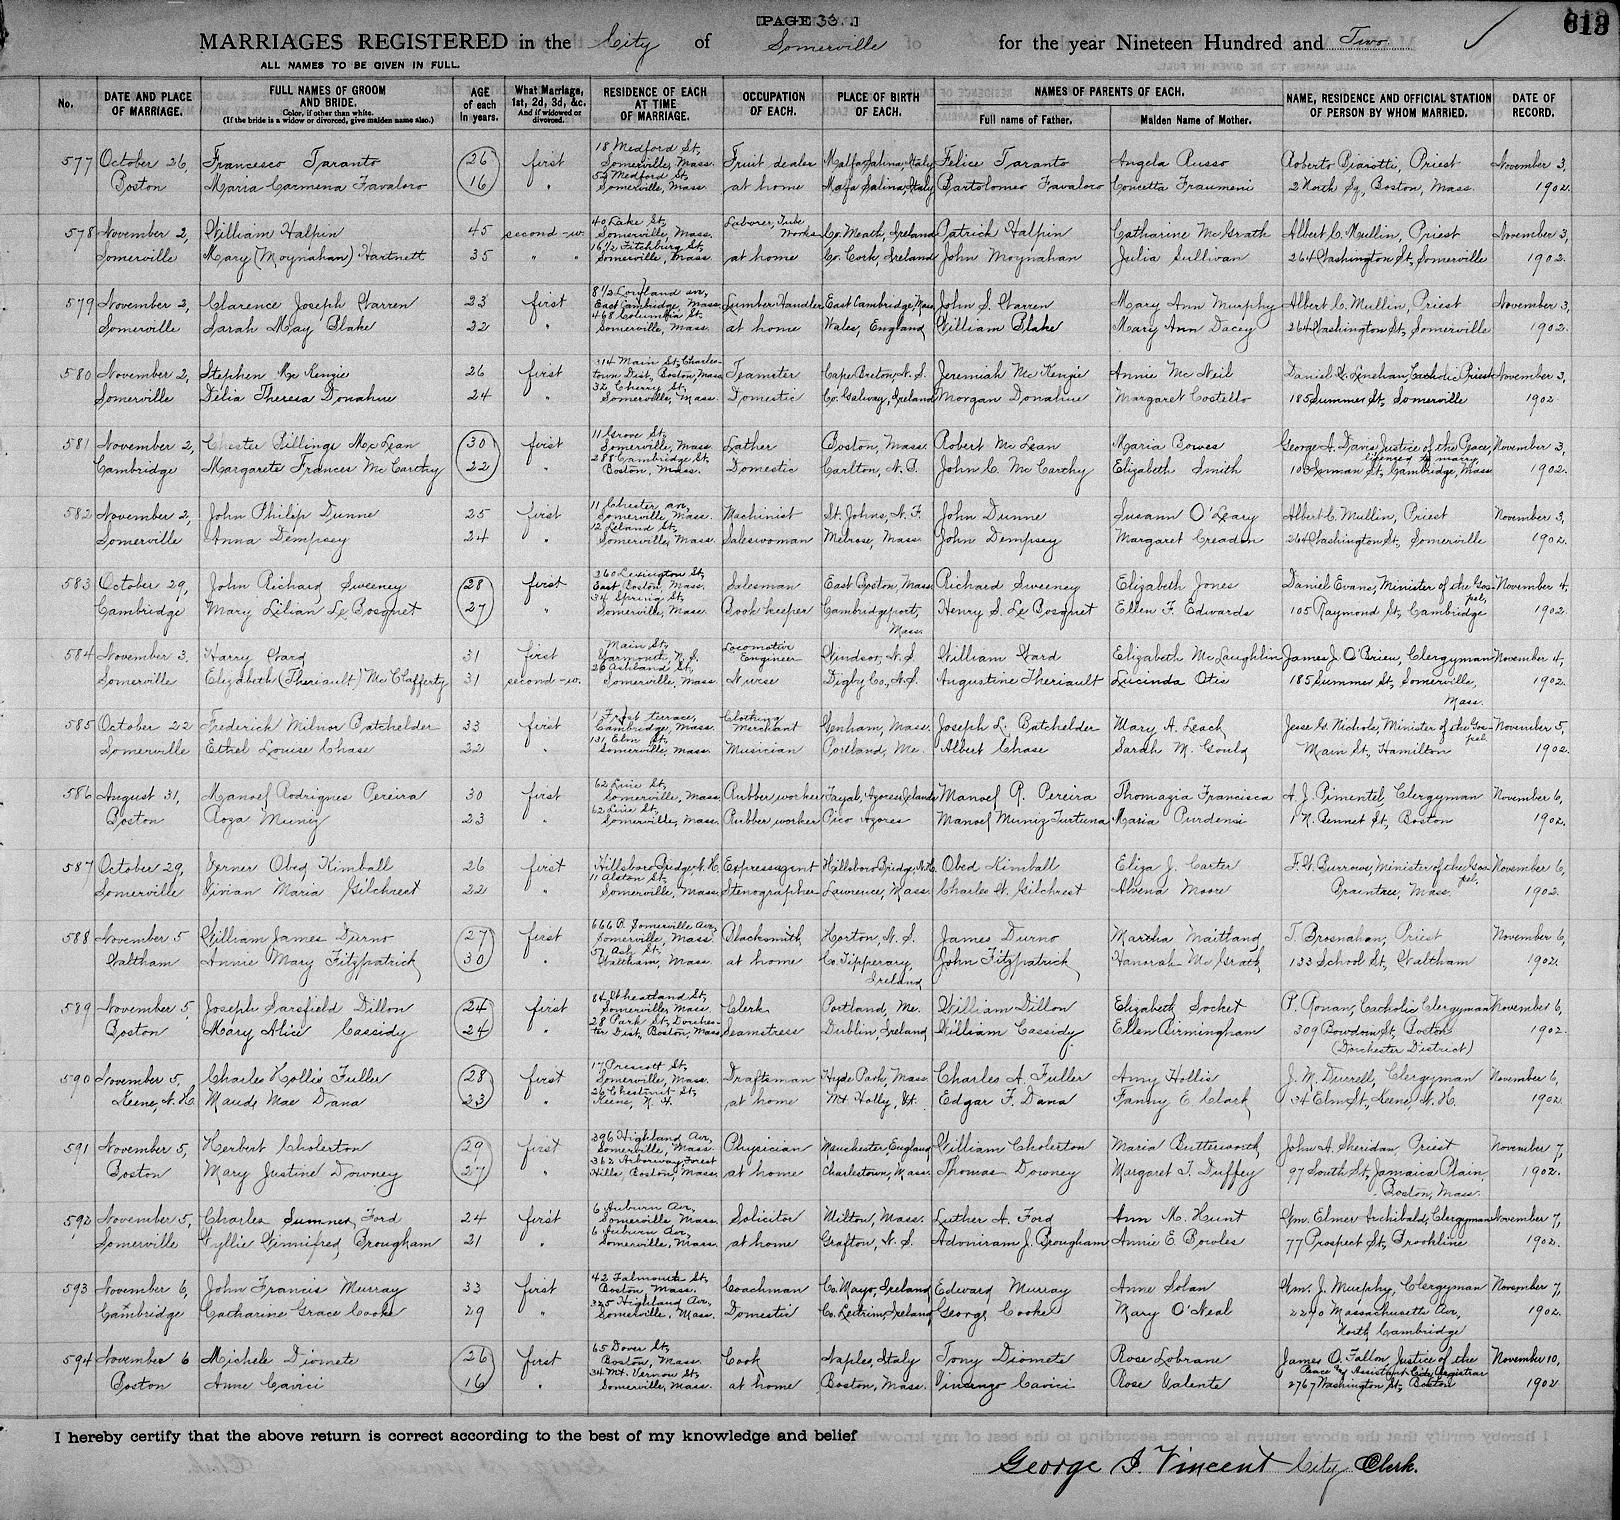 [PAGE 33.]
613
MARRIAGES REGISTERED in the City of Somerville for the year Nineteen Hundred and Two
ALL NAMES TO BE GIVEN IN FULL.
No. DATE AND PLACE OF MARRIAGE. FULL NAMES OF GROOM AND BRIDE. Color, if other than white. (If the bride is a widow or divorced, give maiden name also.) AGE of each in years. What Marriage, 1st, 2d, 3d, &c. And if widowed or divorced. RESIDENCE OF EACH AT TIME OF MARRIAGE. OCCUPATION OF EACH. PLACE OF BIRTH OF EACH. NAMES OF PARENTS OF EACH. Full name of Father. Maiden Name of Mother. NAME, RESIDENCE AND OFFICIAL STATION OF PERSON BY WHOM MARRIED. DATE OF RECORD.
577 October 26, Francesco Taranto 26 first 18 Medford St, Somerville, Mass. Fruit dealer Malfa Salina, Italy Felice Taranto Angela Russo Roberto Biarotti, Priest November 3,
Boston Maria Carmena Favaloro 16 " 52 Medford St, Somerville, Mass. at home Malfa Salina, Italy Bartolomeo Favaloro Concetta Fraumeni 2 North Sq, Boston, Mass. 1902.
578 November 2, William Halpin 45 second-w. 40 Lake St, Somerville, Mass. Laborer, Tube Works Co. Meath, Ireland Patrick Halpin Catharine McGrath Albert C. Mullin, Priest November 3,
Somerville Mary (Moynahan) Hartnett 35 " " 16½ Fitchburg St, Somerville, Mass at home Co. Cork, Ireland John Moynahan Julia Sullivan 264 Washington St, Somerville 1902.
579 November 2, Clarence Joseph Warren 23 first 8½ Loyland av, East Cambridge, Mass. Lumber Handler East Cambridge, Mass John S. Warren Mary Ann Murphy Albert C. Mullin, Priest November 3,
Somerville Sarah May Blake 22 " 468 Columbia St, Somerville, Mass. at home Wales, England William Blake Mary Ann Dacey 264 Washington St, Somerville 1902.
580 November 2, Stephen McKenzie 26 first 314 Main St, Charlestown Dist, Boston, Mass. Teamster Cape Breton, N.S. Jeremiah McKenzie Annie McNeil Daniel C. Lenehan, Catholic Priest November 3,
Somerville Delia Theresa Donahue 24 " 32 Cherry St, Somerville, Mass. Domestic Co. Galway, Ireland Morgan Donahue Margaret Costello 185 Summer St, Somerville 1902
581 November 2, Chester Billings McLean 30 first 11 Grove St, Somerville, Mass. Lather Boston, Mass. Robert McLean Maria Bowes George A. Davis, Justice of the Peace, November 3,
Cambridge Margarete Frances McCarthy 22 " 288 Cambridge St, Boston, Mass. Domestic Carlton, N.S. John C. McCarthy Elizabeth Smith licensed to marry 103 Inman St, Cambridge, Mass 1902.
582 November 2, John Philip Dunne 25 first 11 Chester av, Somerville, Mass. Machinist St. Johns, N.F. John Dunne Susann O'Leary Albert C. Mullin, Priest November 3,
Somerville Anna Dempsey 24 " 12 Leland St, Somerville, Mass. Saleswoman Melrose, Mass. John Dempsey Margaret Creadon 264 Washington St, Somerville 1902.
583 October 29, John Richard Sweeney 28 first 360 Lexington St, East Boston, Mass. Salesman East Boston, Mass Richard Sweeney Elizabeth Jones Daniel Evans, Minister of the Gospel, November 4,
Cambridge Mary Lilian Le Bosquet 27 " 34 Spring St, Somerville, Mass. Book keeper Cambridgeport, Mass. Henry S. Le Bosquet Ellen F. Edwards 105 Raymond St, Cambridge 1902
584 November 3, Harry Ward 31 first Main St, Yarmouth, N.S. Locomotive Engineer Windsor, N.S William Ward Elizabeth McLaughlin James J. O'Brien, Clergyman November 4,
Somerville Elizabeth (Theriault) McClafferty 31 second-w. 26 Ashland St, Somerville, Mass Nurse Digby Co., N.S. Augustine Theriault Lucinda Otis 185 Summer St, Somerville, Mass. 1902.
585 October 22 Frederick Milnor Batchelder 33 first 1 Frost terrace, Cambridge, Mass. Clothing Merchant Wenham, Mass. Joseph L. Batchelder Mary A. Leach Jesse G. Nichols, Minister of the Gospel November 5,
Somerville Ethel Louise Chase 22 " 131 Elm St, Somerville, Mass. Musician Portland, Me. Albert Chase Sarah M. Gould Main St, Hamilton 1902.
586 August 31, Manoel Rodrigues Pereira 30 first 62 Line St, Somerville, Mass. Rubber worker Fayal, Azores Islands Manoel R. Pereira Thomazia Francisca A. J. Pimentel, Clergyman November 6,
Boston Roza Muniz 23 " 62 Line St, Somerville, Mass. Rubber worker Pico Azores Manoel Muniz Furtuna Maria Purdensi 1 N. Bennet St, Boston 1902
587 October 29, Verner Obed Kimball 26 first Hillsboro Bridge, N.H. Express agent Hillsboro Bridge, N.H. Obed Kimball Eliza J. Carter F. W. Burrows, Minister of the Gospel, November 6,
Somerville Vivian Maria Gilchrest 22 " 11 Alston St, Somerville, Mass. Stenographer Lawrence, Mass. Charles W. Gilchrest Alvena Moore Braintree, Mass. 1902.
588 November 5 William James Durno 27 first 666 R. Somerville Ave, Somerville, Mass. Blacksmith Horton, N.S. James Durno Martha Maitland T. Brosnahan, Priest November 6,
Waltham Annie Mary Fitzpatrick 30 " 57 Ash St, Waltham, Mass. at home Co. Tipperary, Ireland John Fitzpatrick Hanorah McGrath 133 School St, Waltham 1902.
589 November 5, Joseph Sarsfield Dillon 24 first 84 Wheatland St, Somerville, Mass Clerk Portland, Me. William Dillon Elizabeth Socket P. Ronan, Catholic Clergyman November 6,
Boston Mary Alice Cassidy 24 " 28 Park St, Dorchester Dist, Boston, Mass Seamstress Dublin, Ireland William Cassidy Ellen Birmingham 309 Bowdoin St, Boston (Dorchester District) 1902.
590 November 5, Charles Hollis Fuller 28 first 17 Prescott St, Somerville, Mass. Draftsman Hyde Park, Mass. Charles A. Fuller Amy Hollis J. M. Durrell, Clergyman November 6,
Keene, N.H. Maude Mae Dana 23 " 26 Chestnut St, Keene, N.H. at home Mt. Holly, Vt. Edgar F. Dana Fanny E. Clark 34 Elm St, Keene, N.H. 1902.
591 November 5, Herbert Cholerton 29 first 396 Highland Ave, Somerville, Mass. Physician Manchester, England William Cholerton Maria Butterworth John A. Sheridan, Priest November 7,
Boston Mary Justine Downey 27 " 362 Arborway, Forest Hills, Boston, Mass. at home Charlestown, Mass. Thomas Downey Margaret I. Duffey 97 South St, Jamaica Plain, Boston, Mass. 1902.
592 November 5, Charles Sumner Ford 24 first 6 Auburn Ave, Somerville, Mass. Solicitor Milton, Mass. Luther A. Ford Ann M. Hunt Wm. Elmer Archibald, Clergyman November 7,
Somerville Wyllie Winnifred Brougham 21 " 6 Auburn Ave, Somerville, Mass. at home Grafton, N.S. Adoniram J. Brougham Annie E. Bowles 77 Prospect St, Brookline 1902.
593 November 6, John Francis Murray 33 first 42 Falmouth St, Boston, Mass. Coachman Co. Mayo, Ireland Edward Murray Anne Solan Wm. J. Murphy, Clergyman November 7,
Cambridge Catharine Grace Cooke 29 " 325 Highland Ave, Somerville, Mass. Domestic Co. Leitrim, Ireland George Cooke Mary O'Neal 2270 Massachusetts Ave, North Cambridge 1902.
594 November 6 Michele Diomete 26 first 65 Dover St, Boston, Mass. Cook Naples, Italy Tony Diomete Rose Lobrane James O. Fallon, Justice of the November 10,
Boston Anne Cavici 16 " 34 Mt. Vernon St, Somerville, Mass. at home Boston, Mass. Vincenzo Cavici Rose Valente Peace & Assistant City Registrar 2767 Washington St, Boston 1902
I hereby certify that the above return is correct according to the best of my knowledge and belief
George I. Vincent City Clerk.